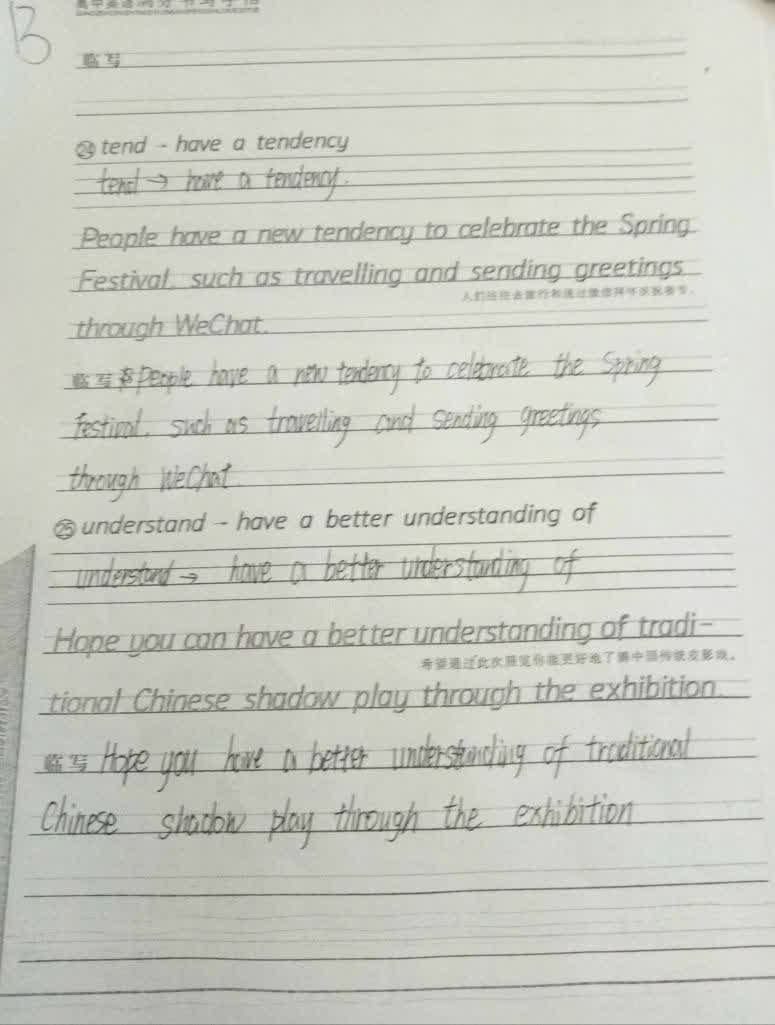 B
高中英语满分书写字帖
临写
㉔ tend - have a tendency
tend → have a tendency.
People have a new tendency to celebrate the Spring
Festival, such as travelling and sending greetings
through WeChat.
临写 People have a new tendency to celebrate the Spring
Festival, such as travelling and sending greetings
through WeChat
㉕ understand - have a better understanding of
understand → have a better understanding of
Hope you can have a better understanding of tradi-
希望通过此次展览你能更好地了解中国传统皮影戏。
tional Chinese shadow play through the exhibition.
临写 Hope you have a better understanding of traditional
Chinese shadow play through the exhibition